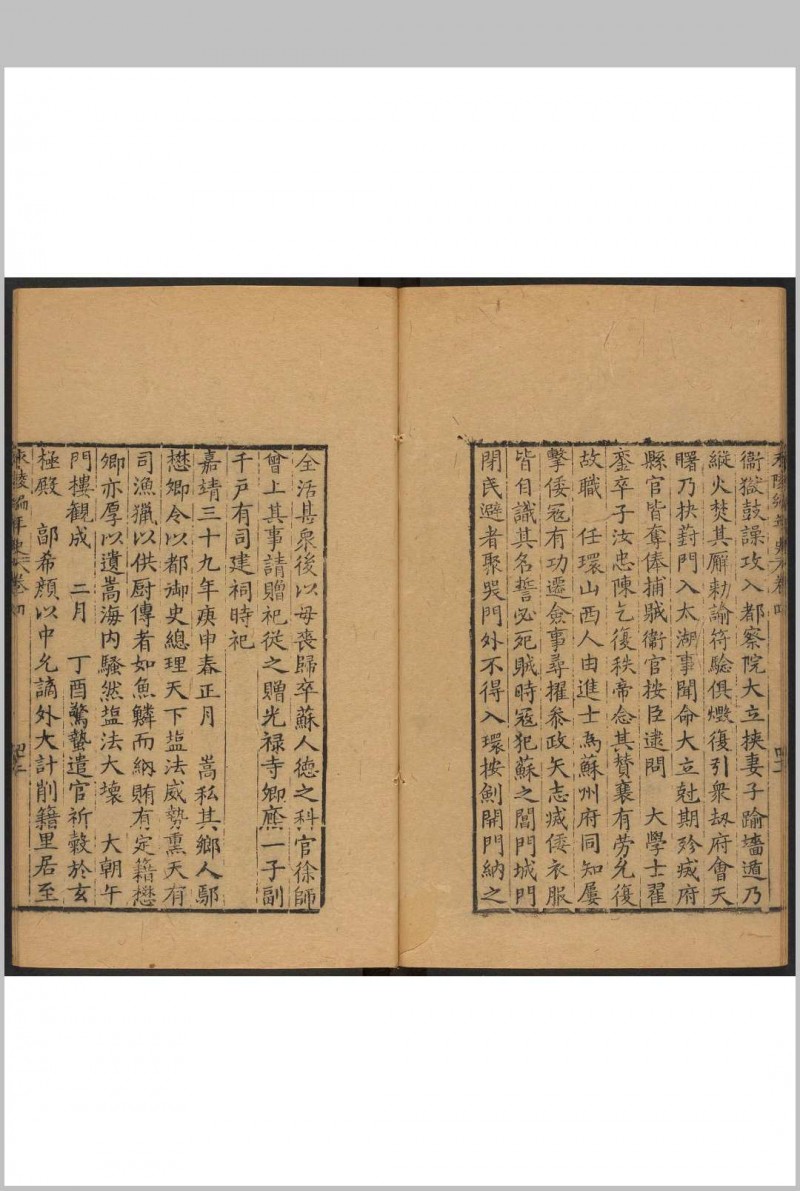 衙獄鼓譟攻入都察院大立挾妻子踰墻遁乃
縱火焚其廨勅諭符驗俱燬復引衆刼府會天
曙乃抉葑門入太湖事聞命大立尅期殄㓕府
縣官皆奪俸捕賊衛官按臣逮問　大學士翟
鑾卒子汝忠陳乞復秩帝念其贊襄有劳允復
故職　任環山西人由進士為蘇州府同知屢
擊倭寇有功遷僉事尋擢叅政矢志㓕倭衣服
皆自識其名誓必死賊時寇犯蘇之閶門城門
閉民避者聚哭門外不得入環按劍開門納之
全活甚衆後以母喪歸卒蘇人德之科官徐師
曾上其事請贈祀從之贈光禄寺卿廕一子副
千戶有司建祠時祀
嘉靖三十九年庚申春正月　嵩私其鄉人鄢
懋卿令以都御史總理天下塩法威勢熏天有
司漁獵以供厨傳者如魚鱗而納賄有定籍懋
卿亦厚以遺嵩海内騷然塩法大壞　大朝午
門樓觀成　二月　丁酉驚蟄遣官祈糓於玄
極殿　郭希顔以中允謫外大計削籍里居至
永陵編年史卷四